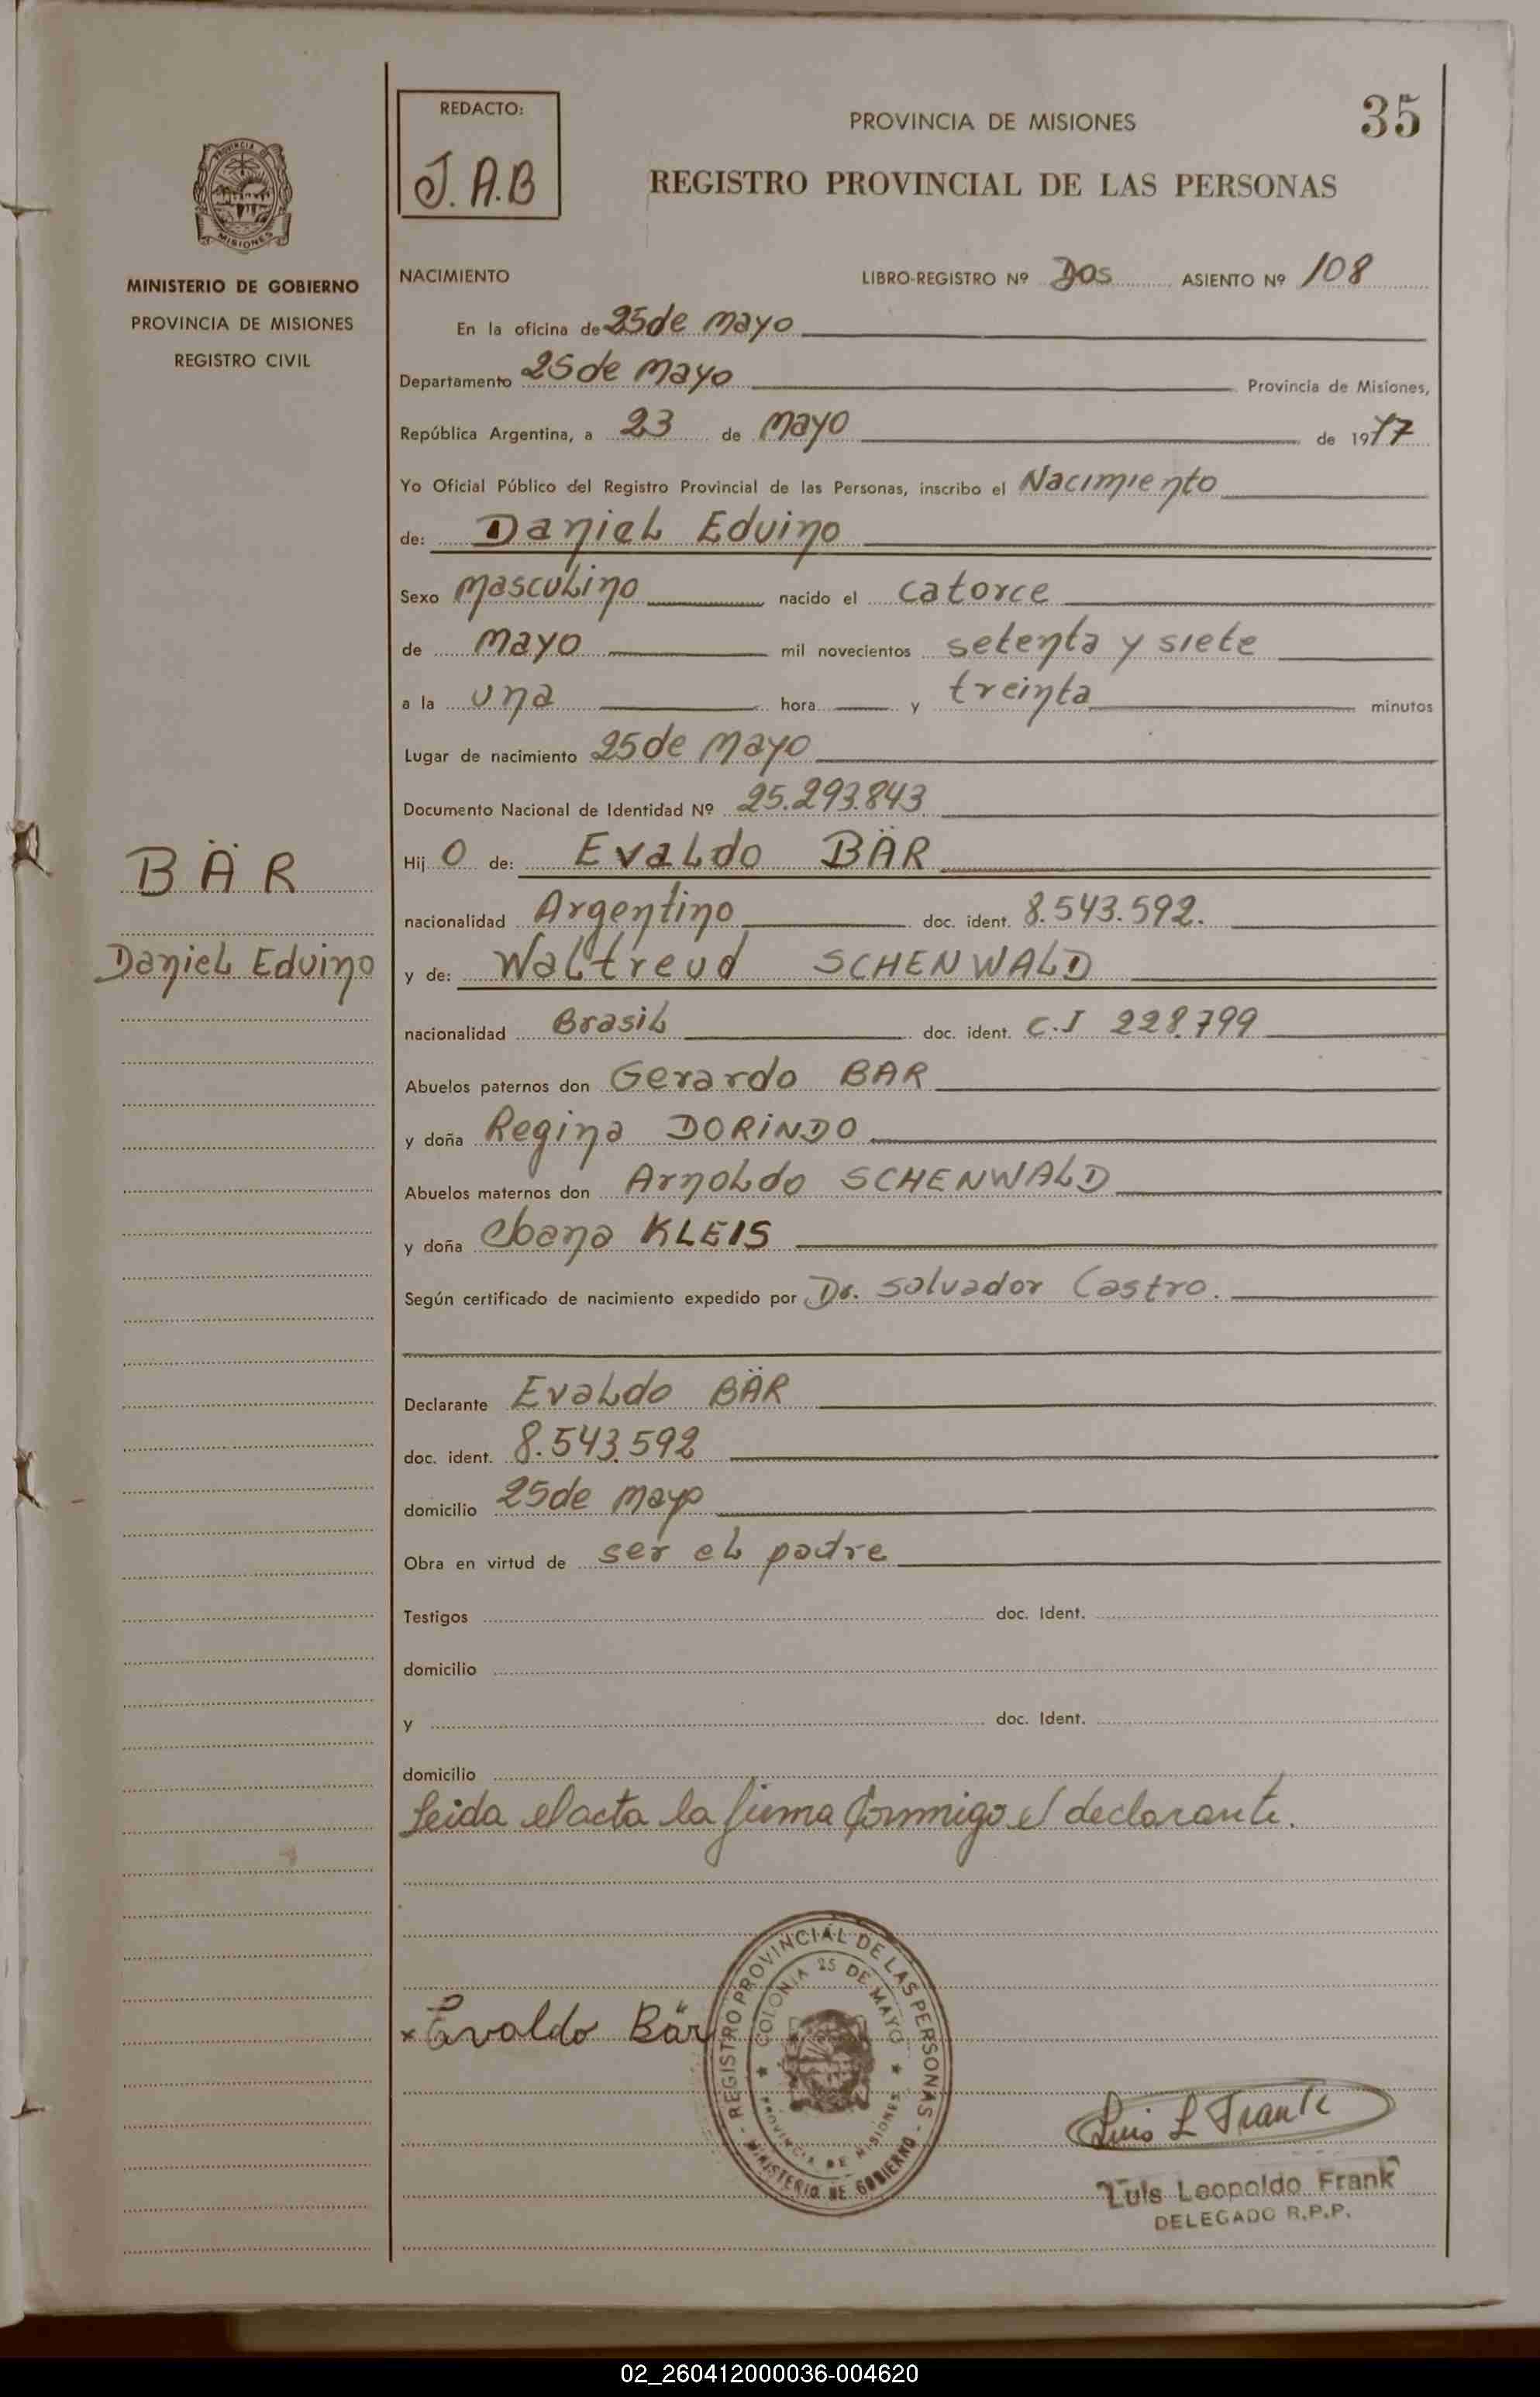 REDACTO:
J. A. B
PROVINCIA DE MISIONES
35
REGISTRO PROVINCIAL DE LAS PERSONAS
PROVINCIA
MISIONES
MINISTERIO DE GOBIERNO
PROVINCIA DE MISIONES
REGISTRO CIVIL
NACIMIENTO LIBRO-REGISTRO Nº Dos ASIENTO Nº 108
En la oficina de 25 de Mayo
Departamento 25 de Mayo Provincia de Misiones,
República Argentina, a 23 de Mayo de 1977
Yo Oficial Público del Registro Provincial de las Personas, inscribo el Nacimiento
de: Daniel Eduino
Sexo Masculino nacido el catorce
de Mayo mil novecientos setenta y siete
a la una hora y treinta minutos
Lugar de nacimiento 25 de Mayo
Documento Nacional de Identidad Nº 25.293.843
Hijo de: Evaldo BÄR
nacionalidad Argentino doc. ident. 8.543.592.
y de: Waltreud SCHENWALD
nacionalidad Brasil doc. ident. C.I 228.799
Abuelos paternos don Gerardo BAR
y doña Regina DORINDO
Abuelos maternos don Arnoldo SCHENWALD
y doña KLEIS
Según certificado de nacimiento expedido por Dr. Salvador Castro.
Declarante Evaldo BÄR
doc. ident. 8.543.592
domicilio 25 de Mayo
Obra en virtud de ser el padre
Testigos doc. Ident.
domicilio
y doc. Ident.
domicilio
Leida el acta la firma conmigo el declarante.
BÄR
Daniel Eduino
x Evaldo Bär
REGISTRO PROVINCIAL DE LAS PERSONAS - MINISTERIO DE GOBIERNO -
COLONIA 25 DE MAYO
PROVINCIA DE MISIONES
Luis L Frank
Luis Leopoldo Frank
DELEGADO R.P.P.
02_260412000036-004620